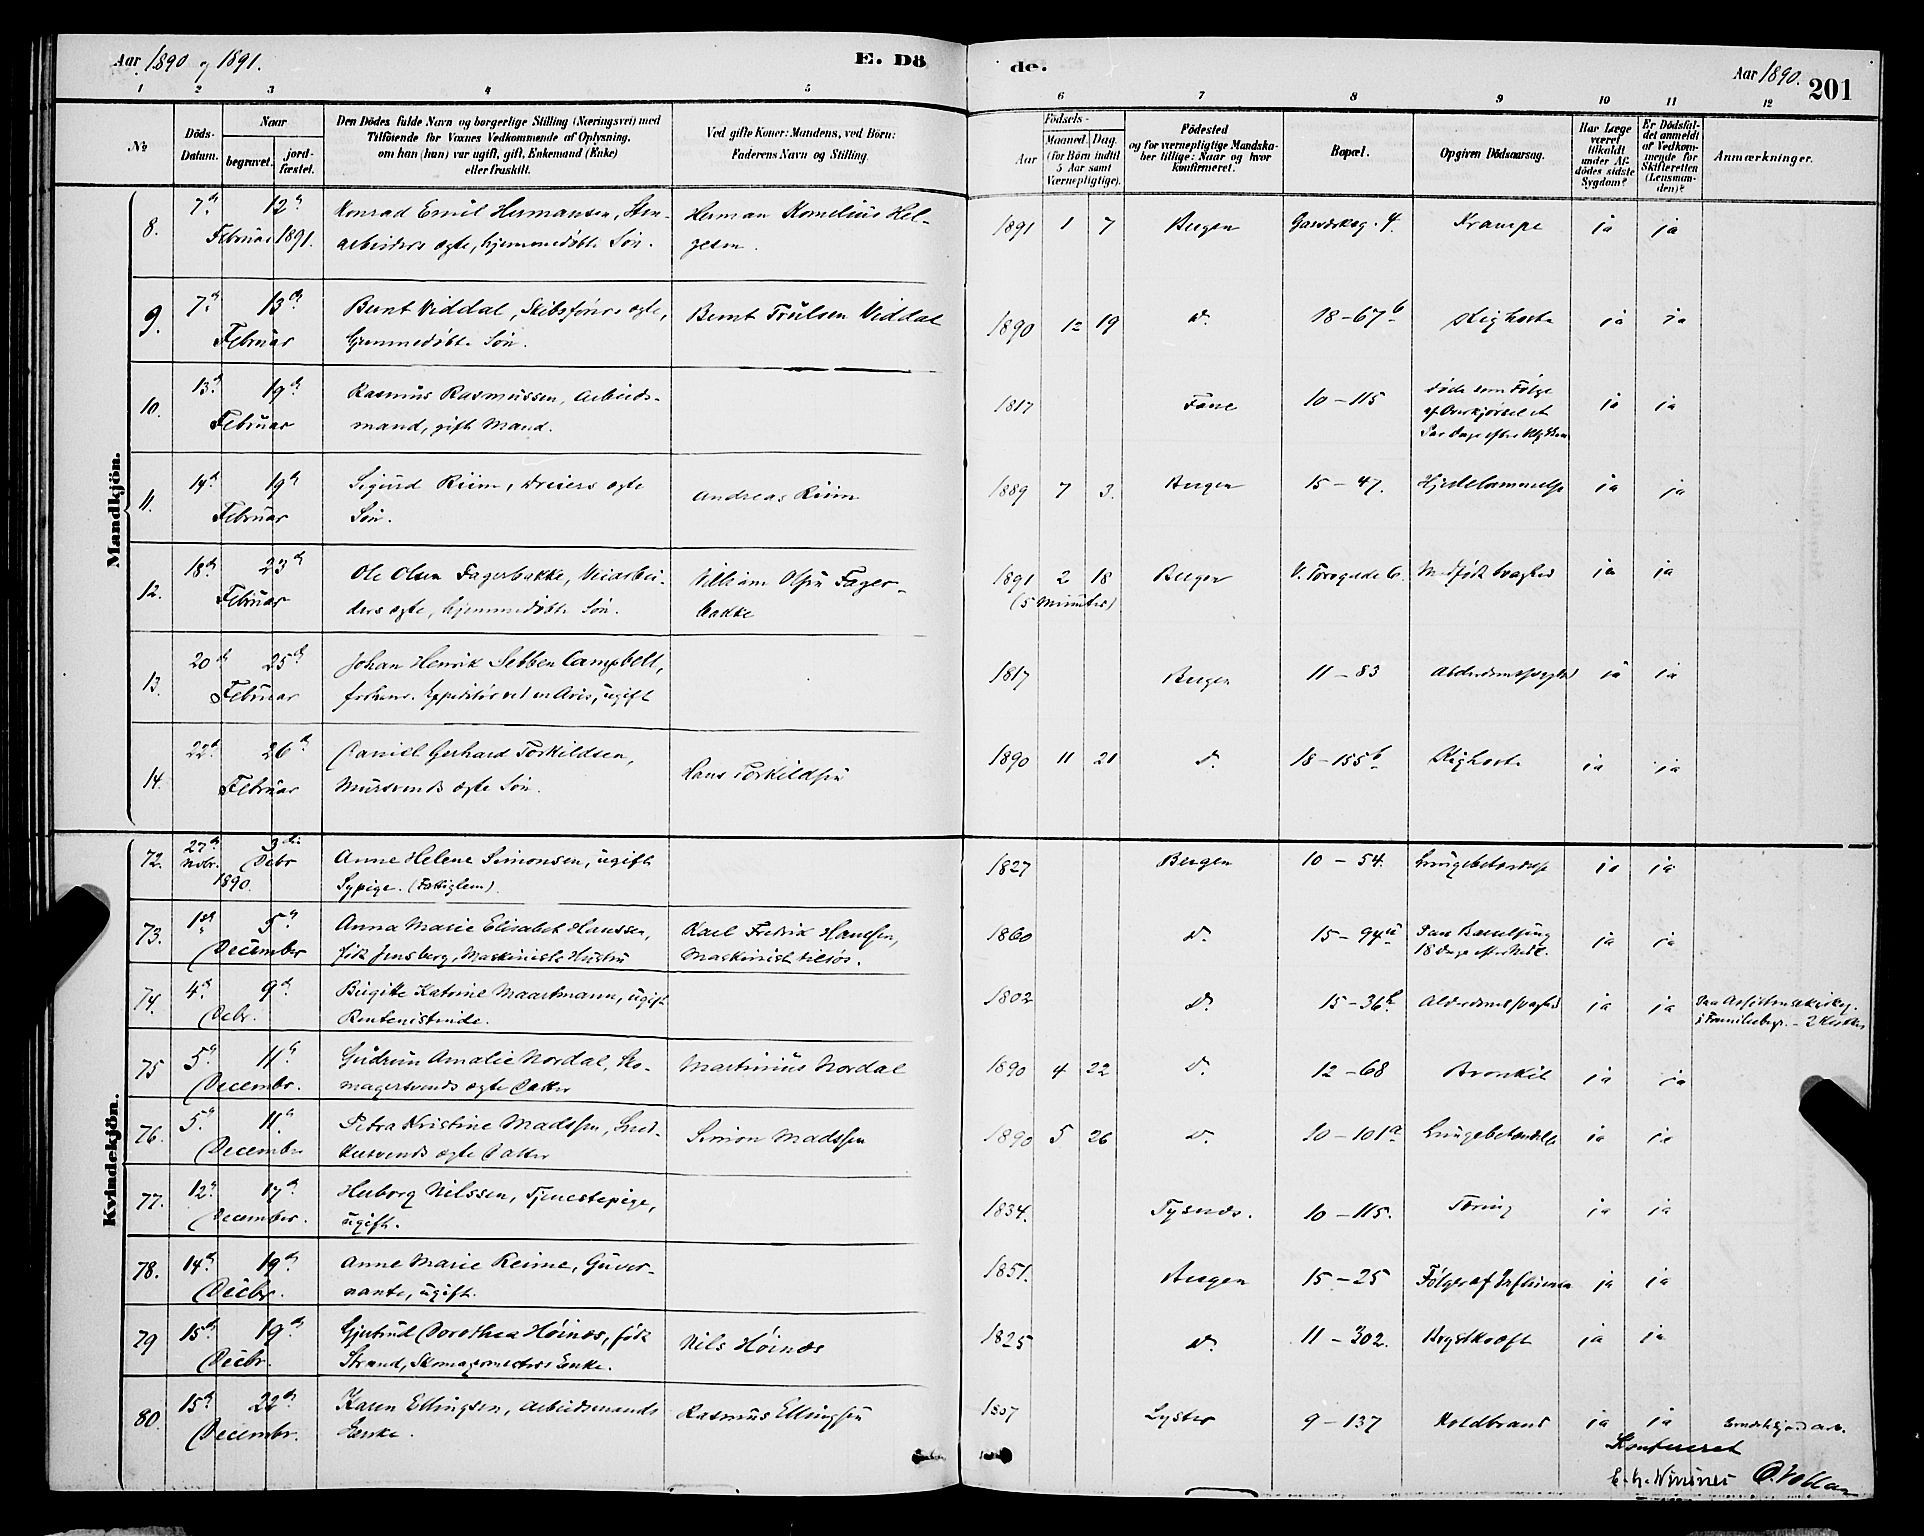 Aar 1890 og 1891.
E. Dö
de.
Aar 1890.
201
1 2 3 4 5 6 7 8 9 10 11 12
No
Döds-Datum.
Naar
begravet.
jord-fæstet.
Den Dödes fulde Navn og borgerlige Stilling (Næringsvei) med
Tilföiende for Voxnes Vedkommende af Oplysning,
om han (hun) var ugift, gift, Enkemand (Enke)
eller fraskilt.
Ved gifte Koner: Mandens, ved Börn:
Faderens Navn og Stilling.
Födsels-
Aar
Maaned.
Dag.
(for Börn indtil
5 Aar samt
Værnepligtige).
Födested
og for værnepligtige Mandska-
ber tillige: Naar og hvor
konfirmeret.
Bopæl.
Opgiven Dödsaarsag.
Har Læge
været
tilkaldt
under Af-
dödes sidste
Sygdom?
Er Dödsfal-
det anmeldt
af Vedkom-
mende for
Skifteretten
(Lensman-
den)?
Anmærkninger.
Mandkjön.
8. 7de 12te Konrad Emil Hermansen, Sten- Herman Kornelius Hel- 1891 1 7 Bergen Gasværksg. 4. Krampe ja ja
Februar 1891. arbeiders ægte, hjemmedøbte Søn. gesen.
9. 7de 13de Bernt Viddal, Skibsførers ægte, Bernt Trulsen Viddal 1890 12 19 Do. 18-67b Kighoste ja ja
Februar hjemmedøbte Søn.
10. 13de 19de Rasmus Rasmussen, Arbeids- 1817 Fane 10-115 døde som Følge ja ja
Februar mand, gift Mand. af Overkjørsel et
11. 14de 19de Sigurd Riim, Dreiers ægte Andreas Riim 1889 7 3. Bergen 15-47. Hjertelammelse ja ja
Februar Søn.
12. 18de 23de Ole Olsen Fagerbakke, Veiarbei- Villiam Olsen Fager- 1891 2 18 Bergen V. Torvgade 6. Medfødt Svaghed ja ja
Februar ders ægte, hjemmedøbte Søn. bakke (5 Minuter)
13. 20de 25de Johan Henrik Sebben Campbell, 1817 Bergen 11-83 Alderdomssvaghed ja ja
Februar forhenv. Expeditør ved en Avis, ugift
14. 22de 26de Daniel Gerhard Torkildsen, Hans Torkildsen 1890 11 21 Do. 18-155b Kighoste ja ja
Februar Mursvends ægte Søn.
Kvindekjön.
72. 27de 3die Anne Helene Simonsen, ugift 1827 Bergen 10-54. Lungebetændelse ja ja
Novbr. Decbr 1890. Sypige. (Fattiglem).
73. 1ste 5te Anna Marie Elisabet Hanssen, Karl Fredrik Hanssen, 1860 Do. 15-94a Par Barselseng ja ja
December født Jensberg, Maskinists Hustru Maskinist tilsøs. 18 Dage efter Nedk.
74. 4de 9de Birgitte Katrine Maartmann, ugift 1802 Do. 15-36b Alderdomssvaghed ja ja Paa Assistentskirkeg.
Decbr. Rentenistinde. i Familiebegr. - 2 Kister
75 5te 11te Gudrun Amalie Nordal, Sko- Martinius Nordal 1890 4 22 Do. 12-68 Bronkit ja ja
Decembr. magersvends ægte Datter
76. 5te 11te Petra Kristine Madssen, Sned- Simon Madssen 1890 5 26 Do. 10-101a Lungebetændelse ja ja
Decembr. kersvends ægte Datter
77. 12te 17de Herborg Nilssen, Tjenestepige, 1834. Tysnæs. 10-115. Tæring ja ja
December. ugift.
78. 14de 19de Anne Marie Reime, Guver- 1851. Bergen 15-25 Følger af Influenza ja ja
Decbr. nante, ugift.
79 15de 19de Gjertrud Dorothea Høinæs, født Nils Høinæs 1825 Do. 11-302. Brystkræft ja ja
Decbr. Strand, Skomagermesters Enke.
80. 15de 22de Karen Ellingsen, Arbeidsmands Rasmus Ellingsen 1807 Lyster 9-137 Koldbrand ja ja
Decembr. Enke.
Konfereret